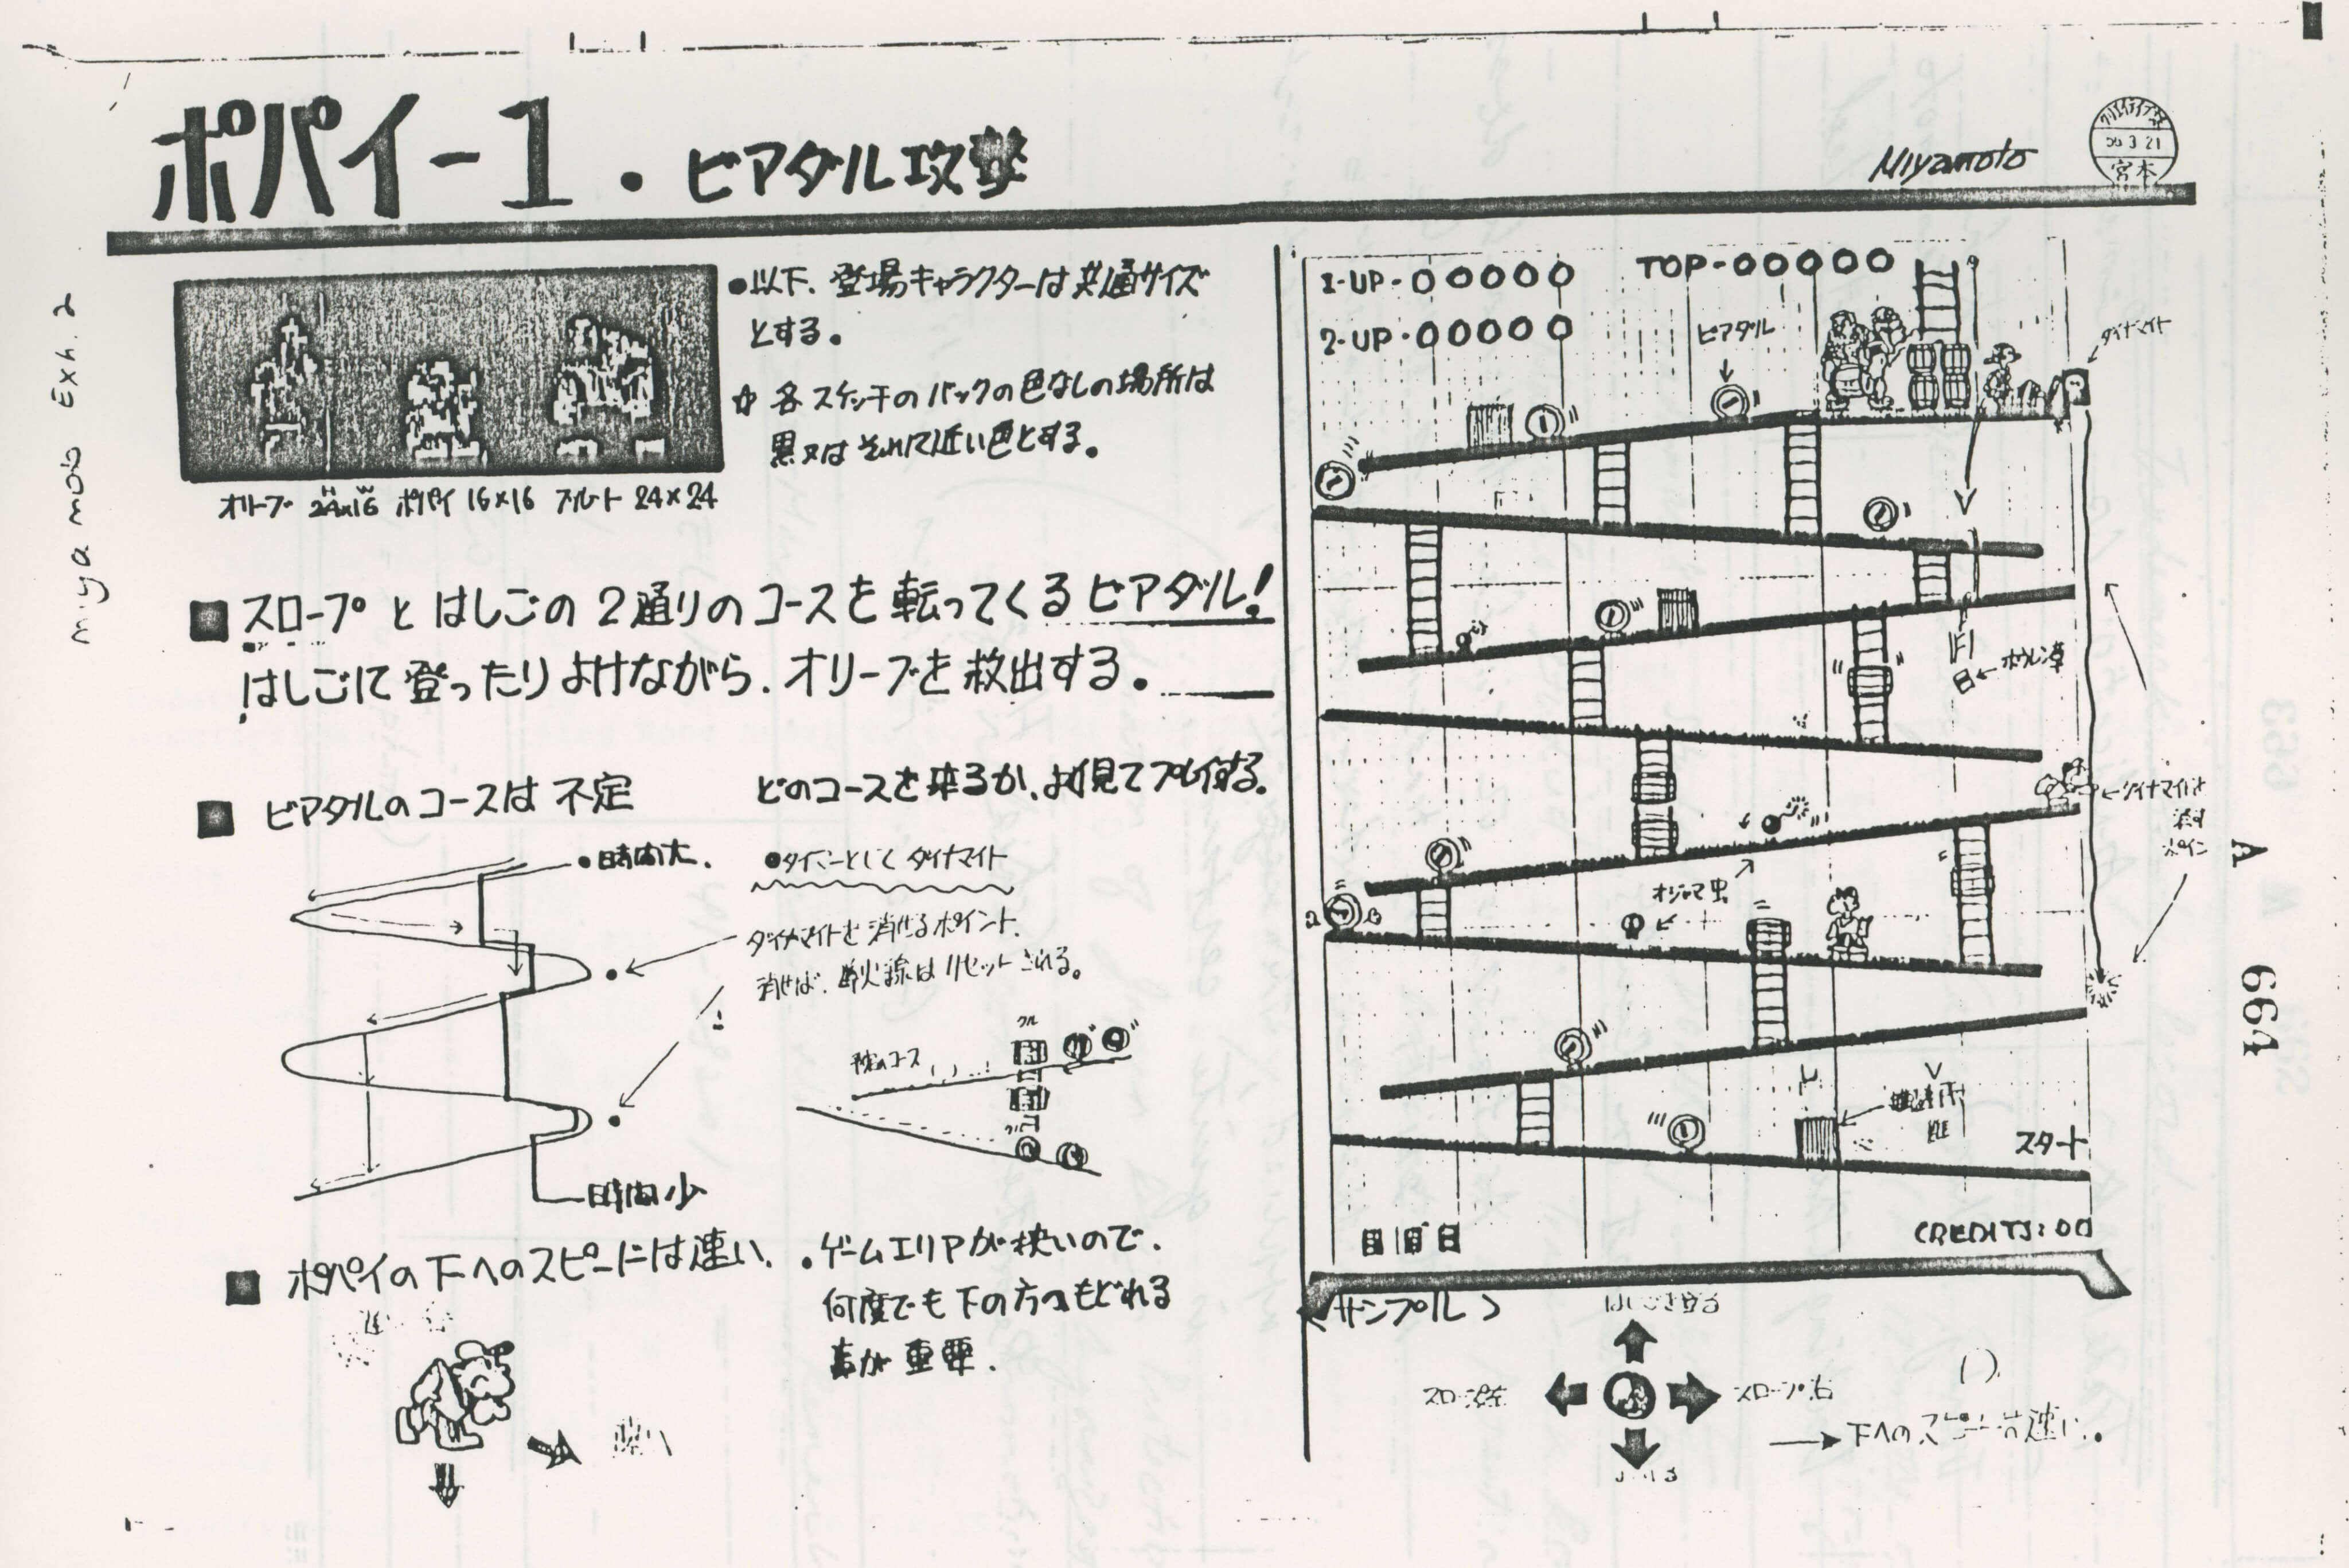 ポパイ-1・ビアダル攻撃
Miyamoto
3 21
宮本
miyamoto Exh. 2
●以下、登場キャラクターは共通サイズ
とする。
☆ 各スケッチのバックの色なしの場所は
黒又はそれに近い色とする。
オリーブ 24×16 ポパイ 16×16 ブルート 24×24
■スロープとはしごの2通りのコースを転ってくるビアダル!
はしごにて登ったりよけながら、オリーブを救出する。
■ビアダルのコースは不定 どのコースを来るか、よく見てプレイする。
●時間大、
●タイマーとして ダイナマイト
ダイナマイトを消せるポイント、
消せば、導火線はリセットされる。
コース
時間少
■ポパイの下へのスピードは速い、
・ゲームエリアが狭いので、
何度でも下の方へもどれる
事が重要.
1-UP-00000 TOP-00000
2-UP-00000
ビアダル
ダイナマイト
ホウレン草
ダイナマイトを
消す
オジャマ虫
スタート
CREDITS:00
<サンプル>
はしごを登る
スロープ左
スロープ右
→下へのスピードは速い。
A
664